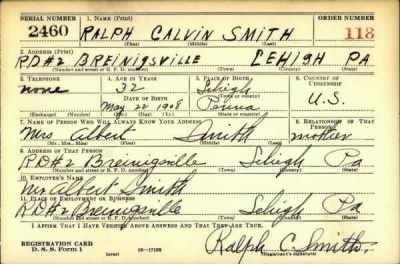 SERIAL NUMBER 1. NAME (Print) ORDER NUMBER
2460 RALPH CALVIN SMITH 118
(First) (Middle) (Last)
2. ADDRESS (Print)
RD#2 BREINIGSVILLE LEHIGH PA
(Number and street or R. F. D. number) (Town) (County) (State)
3. TELEPHONE 4. AGE IN YEARS 5. PLACE OF BIRTH 6. COUNTRY OF CITIZENSHIP
none 32 Lehigh
(Town or county)
DATE OF BIRTH U.S.
May 22 1908 Penna
(Exchange) (Number) (Mo.) (Day) (Yr.) (State or country)
7. NAME OF PERSON WHO WILL ALWAYS KNOW YOUR ADDRESS 8. RELATIONSHIP OF THAT PERSON
Mrs Albert Smith mother
(Mr., Mrs., Miss) (First) (Middle) (Last)
9. ADDRESS OF THAT PERSON
RD#2 Breinigsville Lehigh Pa
(Number and street or R. F. D. number) (Town) (County) (State)
10. EMPLOYER'S NAME
Mr Albert Smith
11. PLACE OF EMPLOYMENT OR BUSINESS
RD#2 Breinigsville Lehigh Pa
(Number and street or R. F. D. number) (Town) (County) (State)
I AFFIRM THAT I HAVE VERIFIED ABOVE ANSWERS AND THAT THEY ARE TRUE.
REGISTRATION CARD
D. S. S. FORM 1 (over) 16-17105 Ralph C. Smith.
(Registrant's signature)